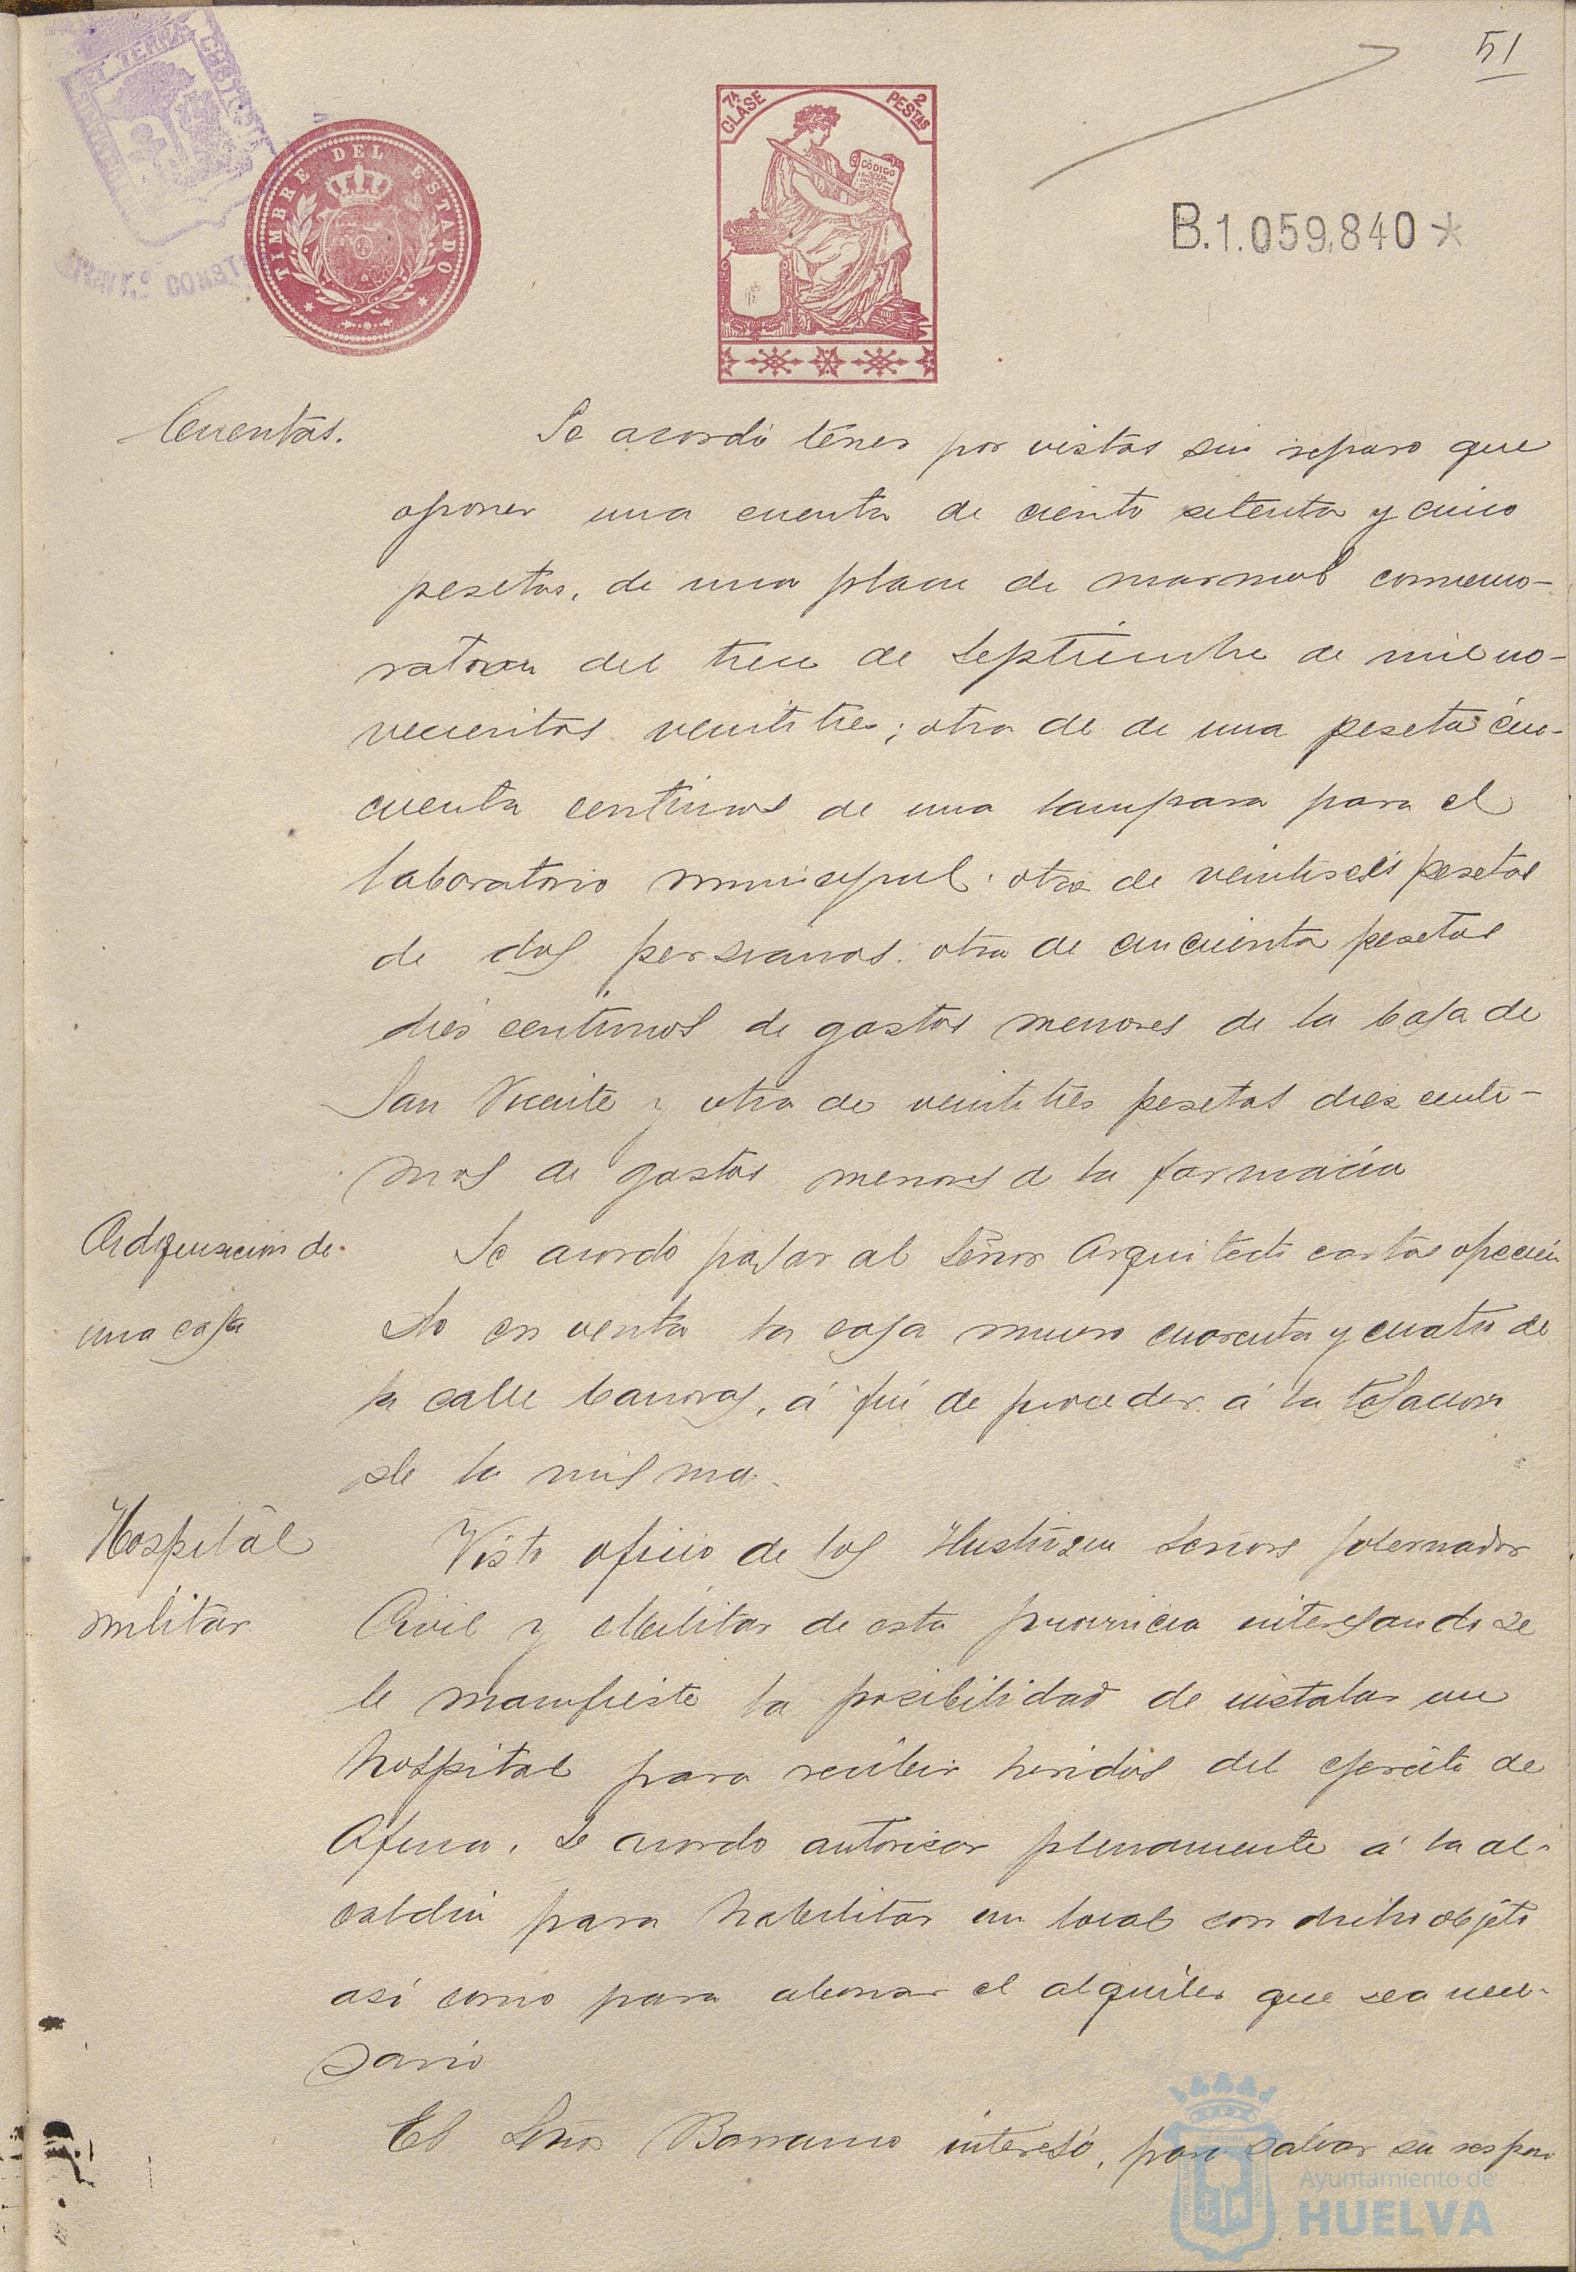 51
7ª CLASE
2 PESTAS
CÓDIGO
TIMBRE DEL ESTADO
B.1.059,840*
Cuentas.
Se acordó tener por vistas sin reparo que
oponer una cuenta de ciento setenta y cinco
pesetas, de una placa de marmol conmemo-
ratoria del trece de Septiembre de mil no-
vecientos veintitres; otra de de una peseta cin-
cuenta centimos de una lampara para el
laboratorio municipal; otra de veintiseis pesetas
de dos persianas; otra de cincuenta pesetas
diez centimos de gastos menores de la Casa de
San Vicente y otra de veintitres pesetas diez centi-
mos de gastos menores d la farmacia
Adquisicion de
una casa
Se acordo pasar al Señor Arquitecto cartas ofrecien
do en venta la casa numero cuarenta y cuatro de
la calle Canovas, á fin de proceder á la tasacion
de la misma.
Hospital
militar
Visto oficio de los Señores Gobernador
Civil y Militar de esta provincia interesando se
le manifieste la posibilidad de instalar un
hospital para recibir heridos del ejercito de
Africa, se acordo autorizar plenamente á la al-
caldia para habilitar un local con dicho objeto
asi como para abonar el alquiler que sea nece-
sario
El Señor Barranco interesó, para salvar su respon
Ayuntamiento de
HUELVA